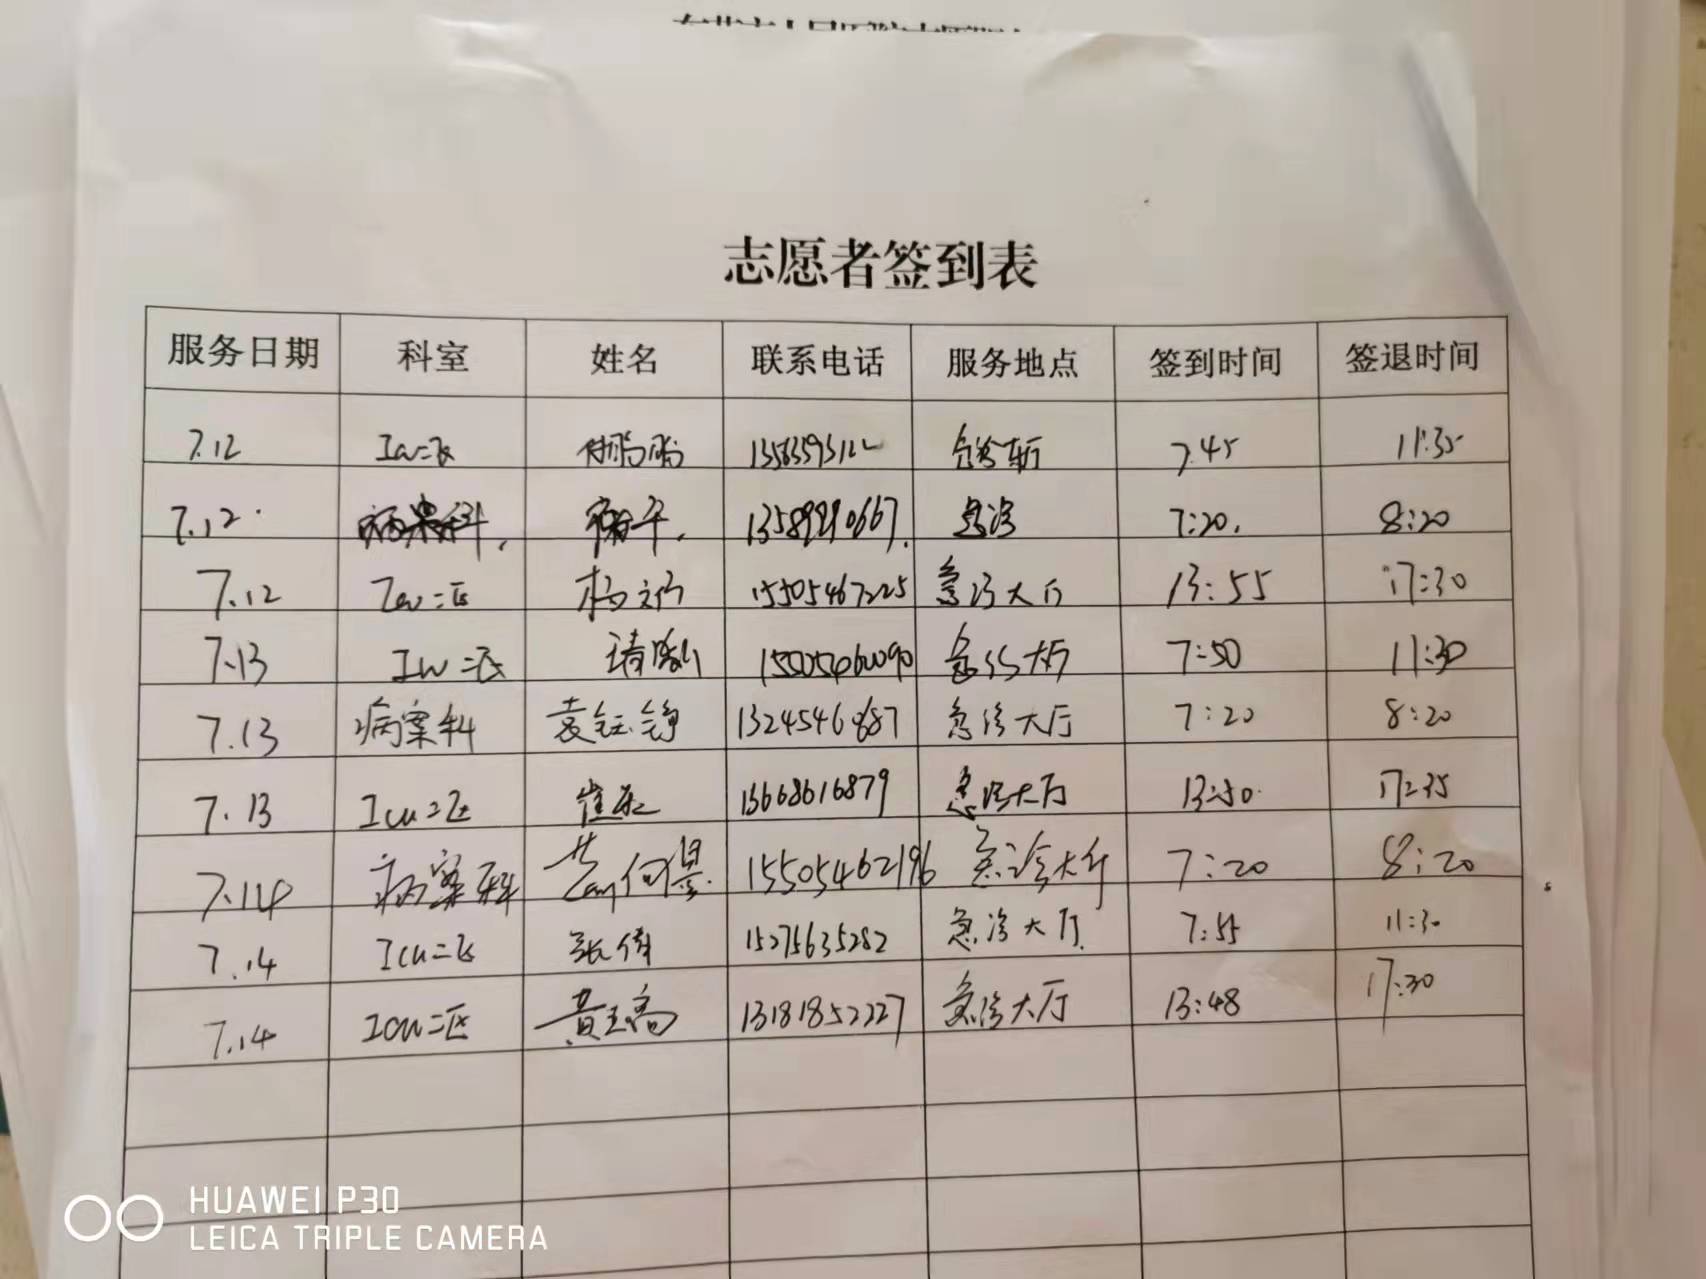 志愿者签到表
服务日期 科室 姓名 联系电话 服务地点 签到时间 签退时间
7.12 Icu二区 急诊大厅 7:45 11:35
7.12 病案科 13589990667 急诊 7:20 8:20
7.12 Icu二区 杨文 15505467225 急诊大厅 13:55 17:30
7.13 Icu二区 急诊大厅 7:50 11:30
7.13 病案科 袁钰铮 急诊大厅 7:20 8:20
7.13 Icu二区 崔 13668616879 急诊大厅 13:50 17:35
7.14 病案科 15505462196 急诊大厅 7:20 8:20
7.14 Icu二区 张倩 15275635282 急诊大厅 7:55 11:30
7.14 ICU二区 黄 13181852227 急诊大厅 13:48 17:30
HUAWEI P30
LEICA TRIPLE CAMERA